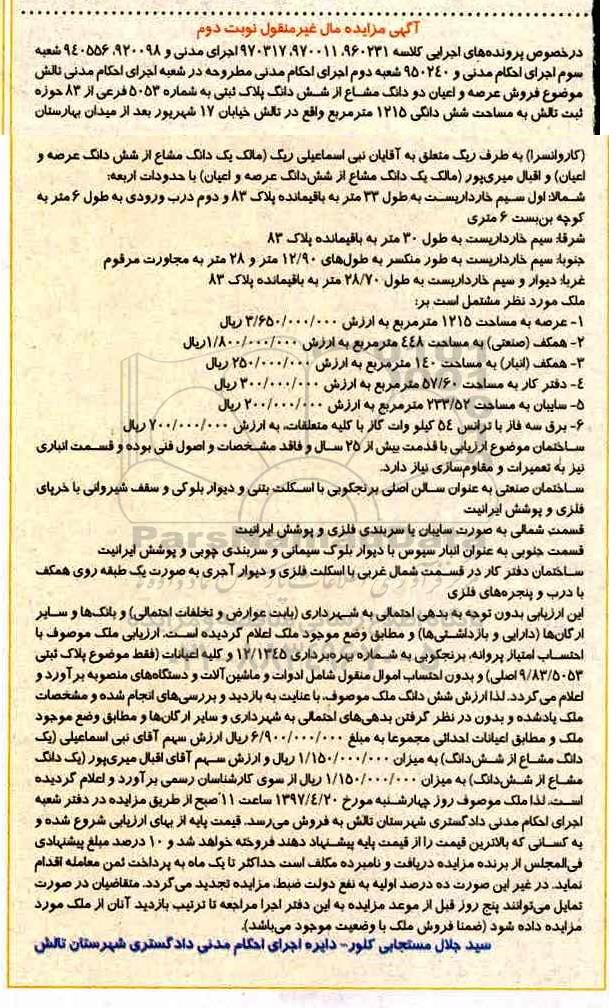 آگهی مزایده مال غیرمنقول نوبت دوم
درخصوص پرونده‌های اجرایی کلاسه ۹۶۰۲۳۱، ۹۷۰۰۱۱، ۹۷۰۳۱۷ اجرای مدنی و ۹۲۰۰۹۸، ۹٤۰۵۵۶ شعبه
سوم اجرای احکام مدنی و ۹۵۰۲٤۰ شعبه دوم اجرای احکام مدنی مطروحه در شعبه اجرای احکام مدنی تالش
موضوع فروش عرصه و اعیان دو دانگ مشاع از شش دانگ پلاک ثبتی به شماره ۵۰۵۳ فرعی از ۸۳ حوزه
ثبت تالش به مساحت شش دانگی ۱۲۱۵ مترمربع واقع در تالش خیابان ۱۷ شهریور بعد از میدان بهارستان
(کاروانسرا) به طرف ریگ متعلق به آقایان نبی اسماعیلی ریگ (مالک یک دانگ مشاع از شش دانگ عرصه و
اعیان) و اقبال میری‌پور (مالک یک دانگ مشاع از شش‌دانگ عرصه و اعیان) با حدودات اربعه:
شمالا: اول سیم خارداریست به طول ۳۳ متر به باقیمانده پلاک ۸۳ و دوم درب ورودی به طول ۶ متر به
کوچه بن‌بست ۶ متری
شرقا: سیم خارداریست به طول ۳۰ متر به باقیمانده پلاک ۸۳
جنوبا: سیم خارداریست به طور منکسر به طول‌های ۱۲/۹۰ متر و ۲۸ متر به مجاورت مرقوم
غربا: دیوار و سیم خارداریست به طول ۲۸/۷۰ متر به باقیمانده پلاک ۸۳
ملک مورد نظر مشتمل است بر:
۱- عرصه به مساحت ۱۲۱۵ مترمربع به ارزش ۳/۶۵۰/۰۰۰/۰۰۰ ریال
۲- همکف (صنعتی) به مساحت ٤٤۸ مترمربع به ارزش ۱/۸۰۰/۰۰۰/۰۰۰ریال
۳- همکف (انبار) به مساحت ۱٤۰ مترمربع به ارزش ۲۵۰/۰۰۰/۰۰۰ ریال
٤- دفتر کار به مساحت ۵۷/۶۰ مترمربع به ارزش ۳۰۰/۰۰۰/۰۰۰ ریال
۵- سایبان به مساحت ۲۳۳/۵۲ مترمربع به ارزش ۲۰۰/۰۰۰/۰۰۰ ریال
۶- برق سه فاز با ترانس ۵٤ کیلو وات گاز با کلیه متعلقات، به ارزش ۷۰۰/۰۰۰/۰۰۰ ریال
ساختمان موضوع ارزیابی با قدمت بیش از ۲۵ سال و فاقد مشخصات و اصول فنی بوده و قسمت انباری
نیز به تعمیرات و مقاوم‌سازی نیاز دارد.
ساختمان صنعتی به عنوان سالن اصلی برنجکوبی با اسکلت بتنی و دیوار بلوکی و سقف شیروانی با خرپای
فلزی و پوشش ایرانیت
قسمت شمالی به صورت سایبان با سربندی فلزی و پوشش ایرانیت
قسمت جنوبی به عنوان انبار سبوس با دیوار بلوک سیمانی و سربندی چوبی و پوشش ایرانیت
ساختمان دفتر کار در قسمت شمال غربی با اسکلت فلزی و دیوار آجری به صورت یک طبقه روی همکف
با درب و پنجره‌های فلزی
این ارزیابی بدون توجه به بدهی احتمالی به شهرداری (بابت عوارض و تخلفات احتمالی) و بانک‌ها و سایر
ارگان‌ها (دارایی و بازداشتی‌ها) و مطابق وضع موجود ملک اعلام گردیده است. ارزیابی ملک موصوف با
احتساب امتیاز پروانه، برنجکوبی به شماره بهره‌برداری ۱۲/۱۳٤۵ و کلیه اعیانات (فقط موضوع پلاک ثبتی
۹/۸۳/۵۰۵۳ اصلی) و بدون احتساب اموال منقول شامل ادوات و ماشین‌آلات و دستگاه‌های منصوبه برآورد و
اعلام می‌گردد. لذا ارزش شش دانگ ملک موصوف، با عنایت به بازدید و بررسی‌های انجام شده و مشخصات
ملک یادشده و بدون در نظر گرفتن بدهی‌های احتمالی به شهرداری و سایر ارگان‌ها و مطابق وضع موجود
ملک و مطابق اعیانات احداثی مجموعا به مبلغ ۶/۹۰۰/۰۰۰/۰۰۰ ریال ارزش سهم آقای نبی اسماعیلی (یک
دانگ مشاع از شش‌دانگ) به میزان ۱/۱۵۰/۰۰۰/۰۰۰ ریال و ارزش سهم آقای اقبال میری‌پور (یک دانگ
مشاع از شش‌دانگ) به میزان ۱/۱۵۰/۰۰۰/۰۰۰ ریال از سوی کارشناسان رسمی برآورد و اعلام گردیده
است. لذا ملک موصوف روز چهارشنبه مورخ ۱۳۹۷/٤/۲۰ ساعت ۱۱ صبح از طریق مزایده در دفتر شعبه
اجرای احکام مدنی دادگستری شهرستان تالش به فروش می‌رسد. قیمت پایه از بهای ارزیابی شروع شده و
به کسانی که بالاترین قیمت را از قیمت پایه پیشنهاد دهند فروخته خواهد شد و ۱۰ درصد مبلغ پیشنهادی
فی‌المجلس از برنده مزایده دریافت و نامبرده مکلف است حداکثر تا یک ماه به پرداخت ثمن معامله اقدام
نماید. در غیر این صورت ده درصد اولیه به نفع دولت ضبط، مزایده تجدید می‌گردد. متقاضیان در صورت
تمایل می‌توانند پنج روز قبل از موعد مزایده به این دفتر اجرا مراجعه تا ترتیب بازدید آنان از ملک مورد
مزایده داده شود (ضمنا فروش ملک با وضعیت موجود می‌باشد).
سید جلال مستجابی کلور- دایره اجرای احکام مدنی دادگستری شهرستان تالش